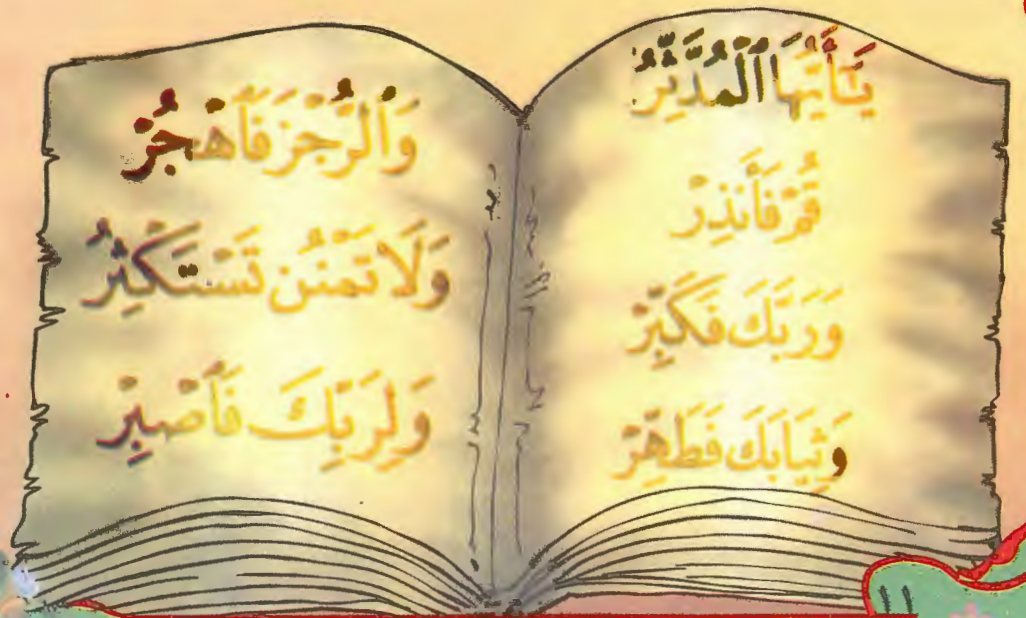 يَـٰٓأَيُّهَا ٱلْمُدَّثِّرُ
قُمْ فَأَنذِرْ
وَرَبَّكَ فَكَبِّرْ
وَثِيَابَكَ فَطَهِّرْ
وَٱلرُّجْزَ فَٱهْجُرْ
وَلَا تَمْنُن تَسْتَكْثِرُ
وَلِرَبِّكَ فَٱصْبِرْ